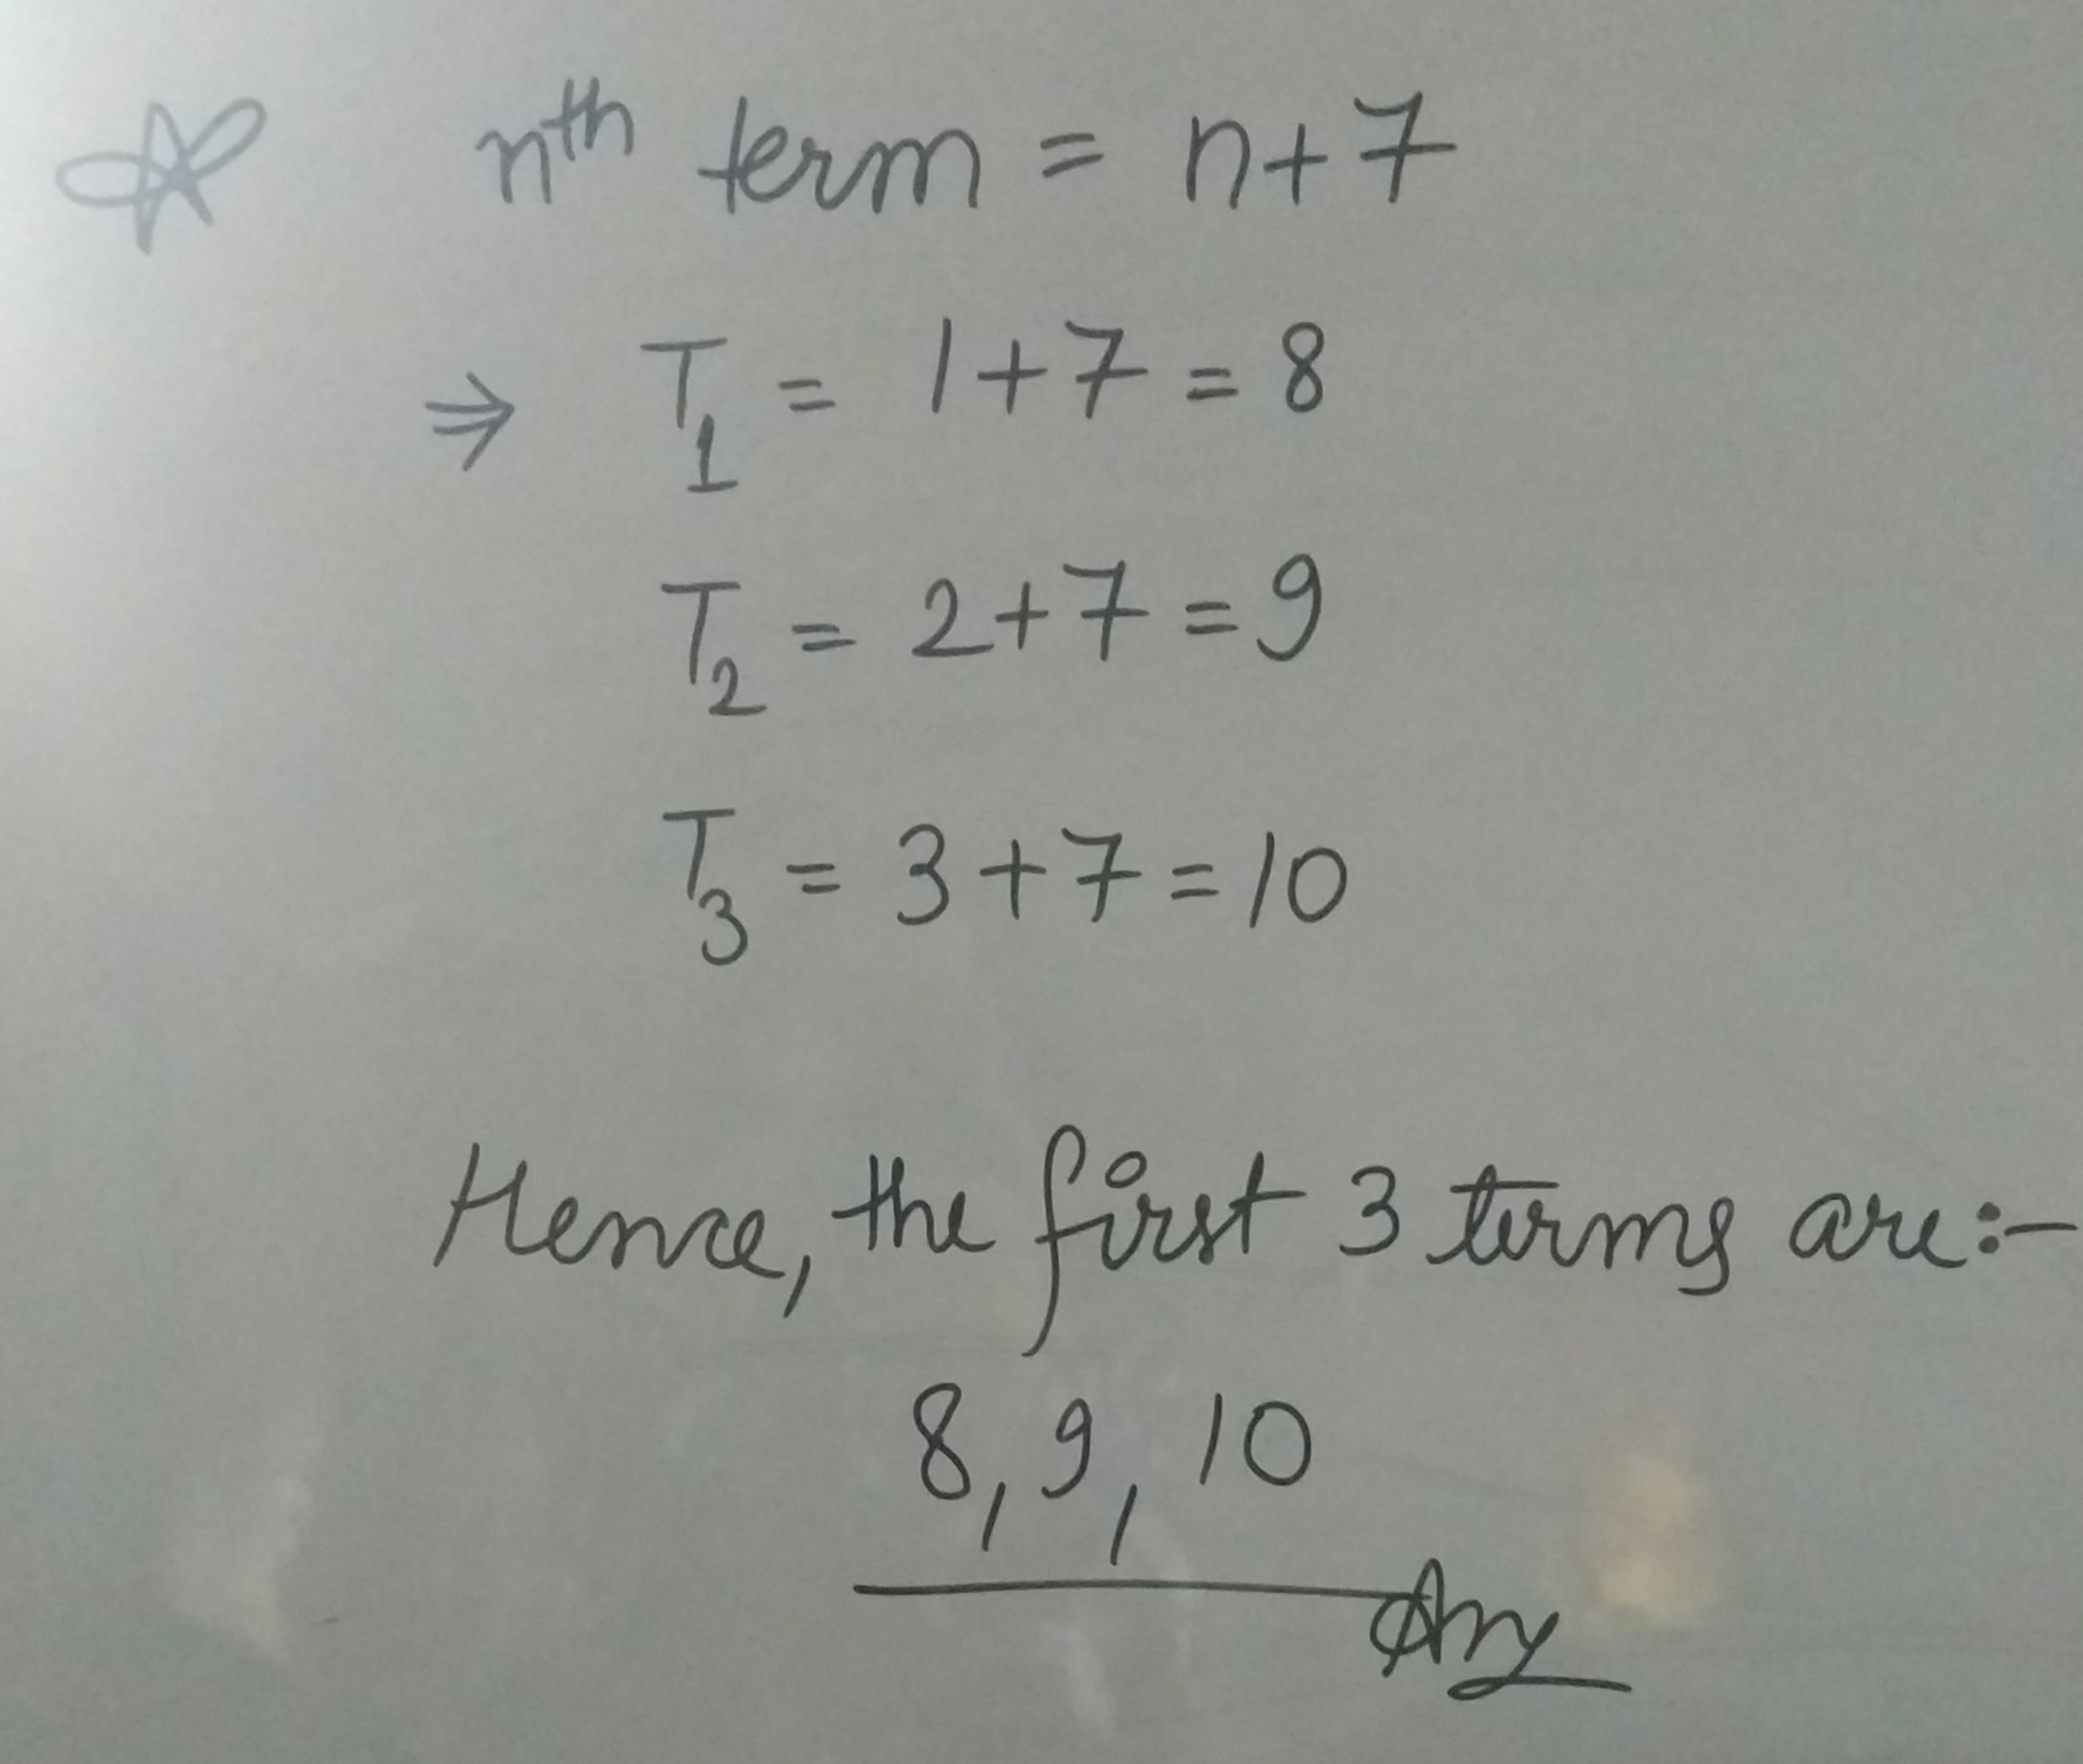 nth term = n+7
⇒ T1 = 1+7 = 8
T2 = 2+7 = 9
T3 = 3+7 = 10
Hence, the first 3 terms are:-
8, 9, 10
Ans